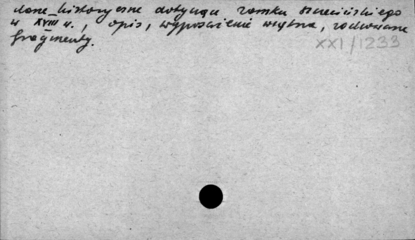 dane historyczne dotyczące zamku szczecińskiego
w XVIII w., opis, wyposażenie wnętrza, zachowane
fragmenty.
XXI/1233